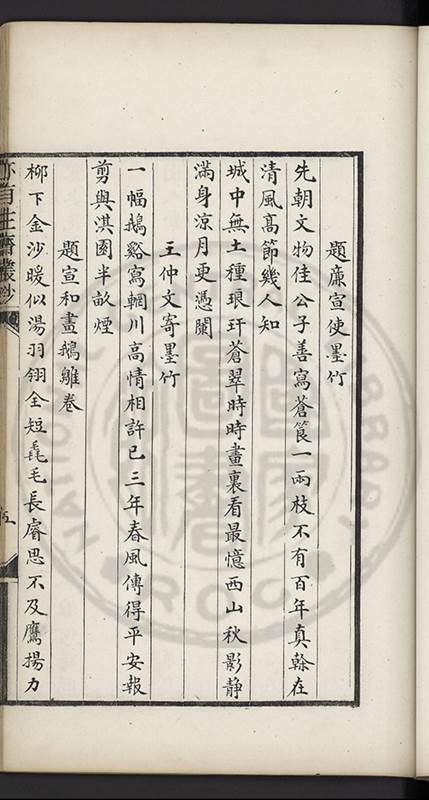 題廉宣使墨竹
先朝文物佳公子善寫蒼筤一兩枝不有百年真榦在
清風高節幾人知
城中無土種琅玕蒼翠時時畫裏看最憶西山秋影静
滿身涼月更憑闌
王仲文寄墨竹
一幅鵝谿寫輞川高情相許已三年春風傳得平安報
剪與淇園半畝煙
題宣和畫鵝雛卷
柳下金沙暖似湯羽翎全短毳毛長睿思不及鷹揚力
亦有生齋叢鈔
NATIONAL LIBRARY
ROC